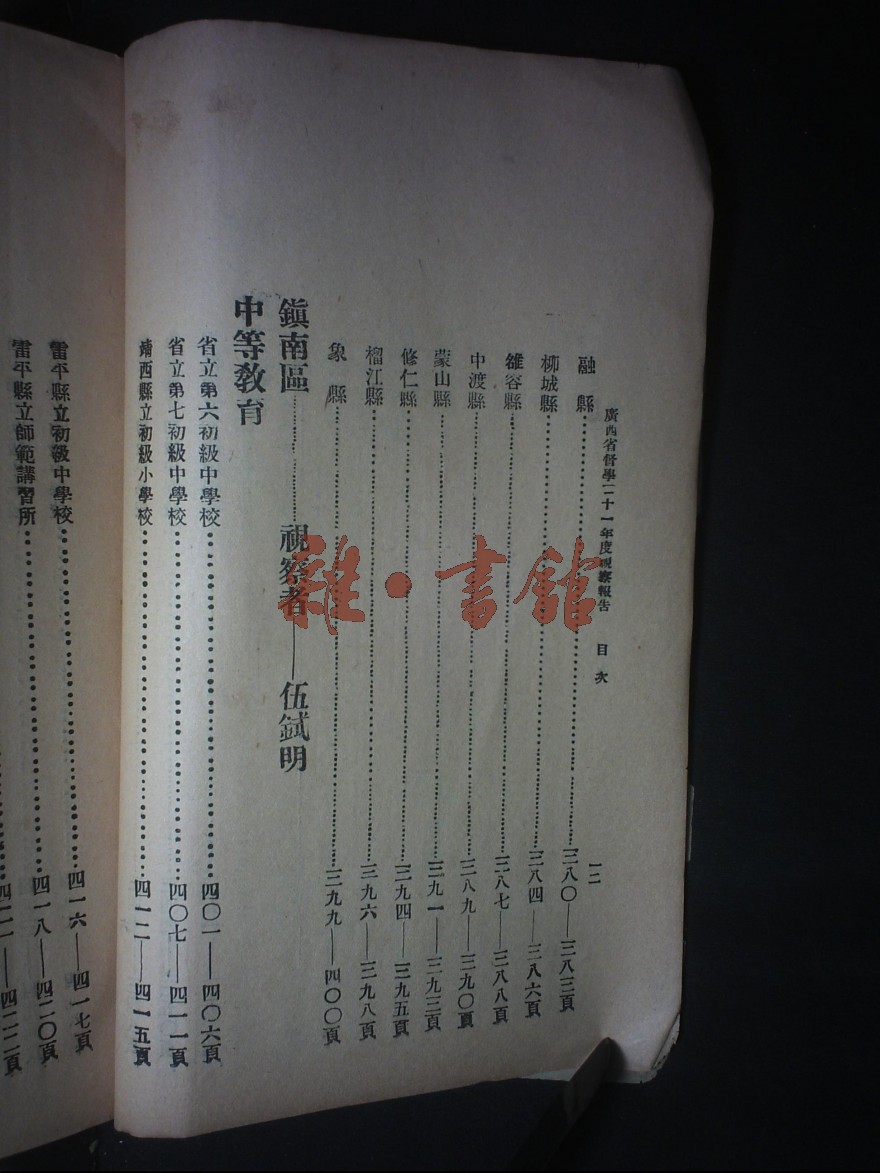 廣西省督學二十一年度視察報告 目次 一二
融縣……三八〇——三八三頁
柳城縣……三八四——三八六頁
雒容縣……三八七——三八八頁
中渡縣……三八九——三九〇頁
蒙山縣……三九一——三九三頁
修仁縣……三九四——三九五頁
榴江縣……三九六——三九八頁
象縣……三九九——四〇〇頁
鎭南區……視察者——伍鉽明
中等敎育
省立第六初級中學校……四〇一——四〇六頁
省立第七初級中學校……四〇七——四一一頁
靖西縣立初級小學校……四一二——四一五頁
雷平縣立初級中學校……四一六——四一七頁
雷平縣立師範講習所……四一八——四二〇頁
四二一——四二二頁
雜·書館